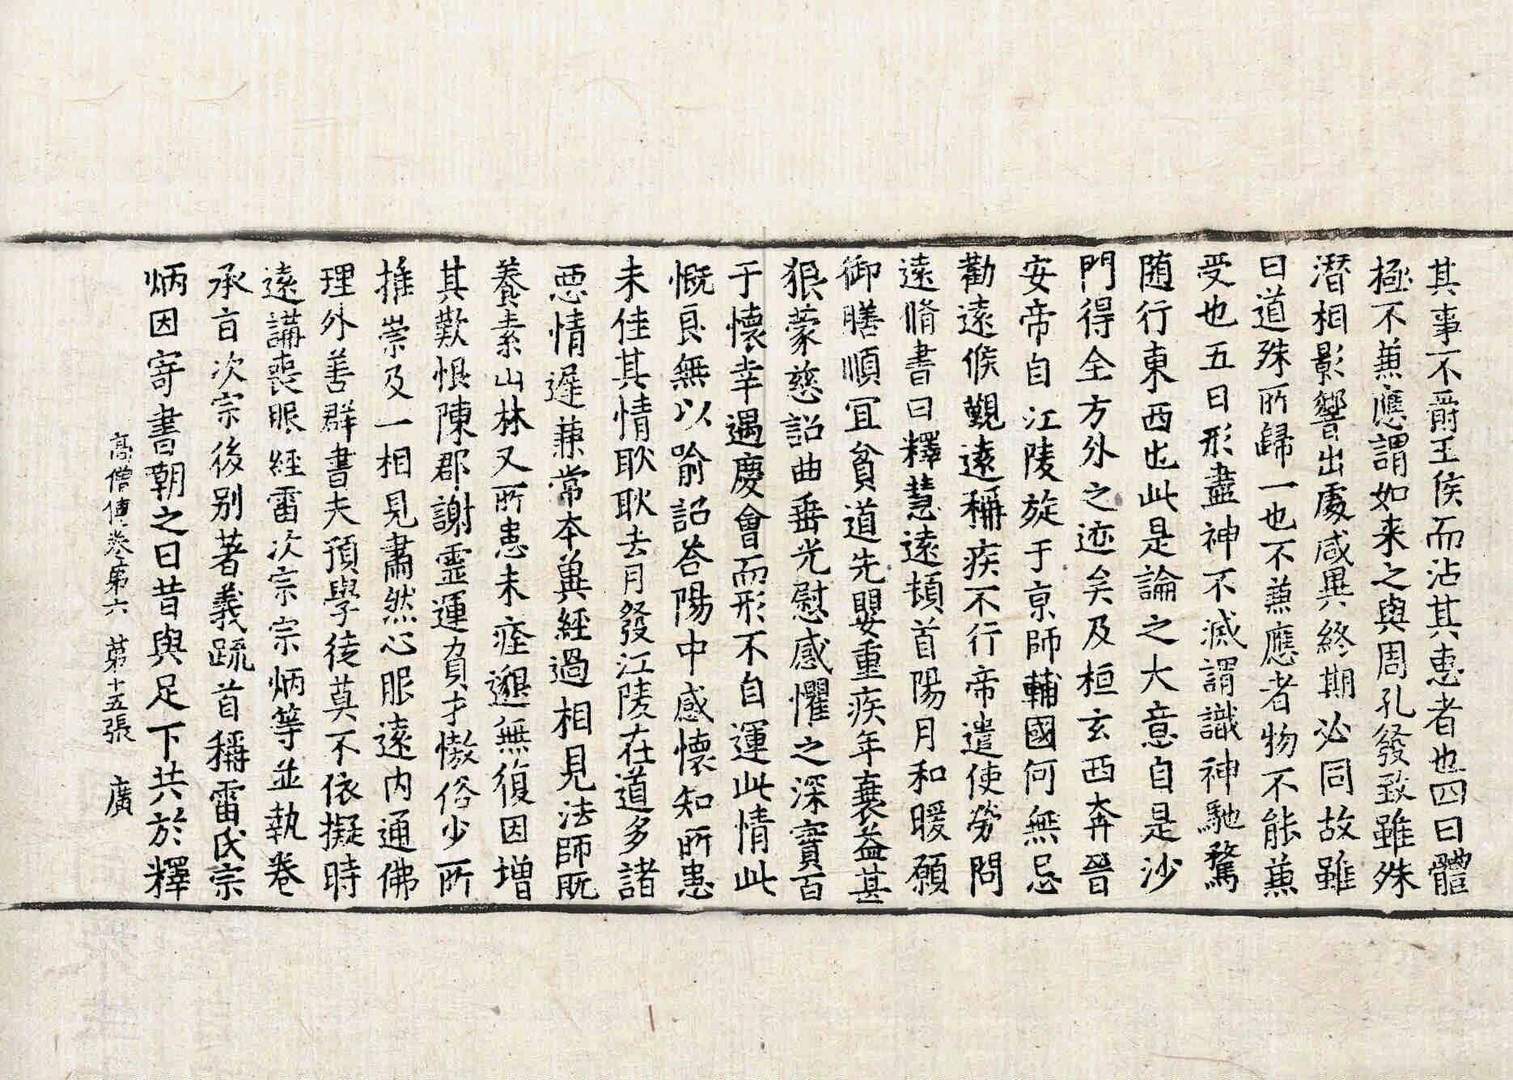 其事不爵王侯而沾其惠者也四曰體
極不兼應謂如来之與周孔發致雖殊
潜相影響出處咸異終期必同故雖
曰道殊所歸一也不兼應者物不能兼
受也五曰形盡神不滅謂識神馳騖
随行東西也此是論之大意自是沙
門得全方外之迹矣及桓玄西奔晉
安帝自江陵旋于京師輔國何無忌
勸遠候覲遠稱疾不行帝遣使勞問
遠脩書曰釋慧遠頓首陽月和暖願
御膳順冝貧道先嬰重疾年衰益甚
狠蒙慈詔曲垂光慰感懼之深實百
于懷幸遇慶會而形不自運此情此
慨良無以喻詔荅陽中感懷知所患
未佳其情耿耿去月發江陵在道多諸
惡情遲兼常本兾經過相見法師既
養素山林又所患未痊邈無復因增
其歎恨陳郡謝靈運負才慠俗少所
推崇及一相見肅然心服遠内通佛
理外善群書夫預學徒莫不依擬時
遠講喪服經雷次宗宗炳等並執卷
承㫖次宗後别著義疏首稱雷氏宗
炳因寄書嘲之曰昔與足下共於釋
高僧傳卷第六 第十五張 廣